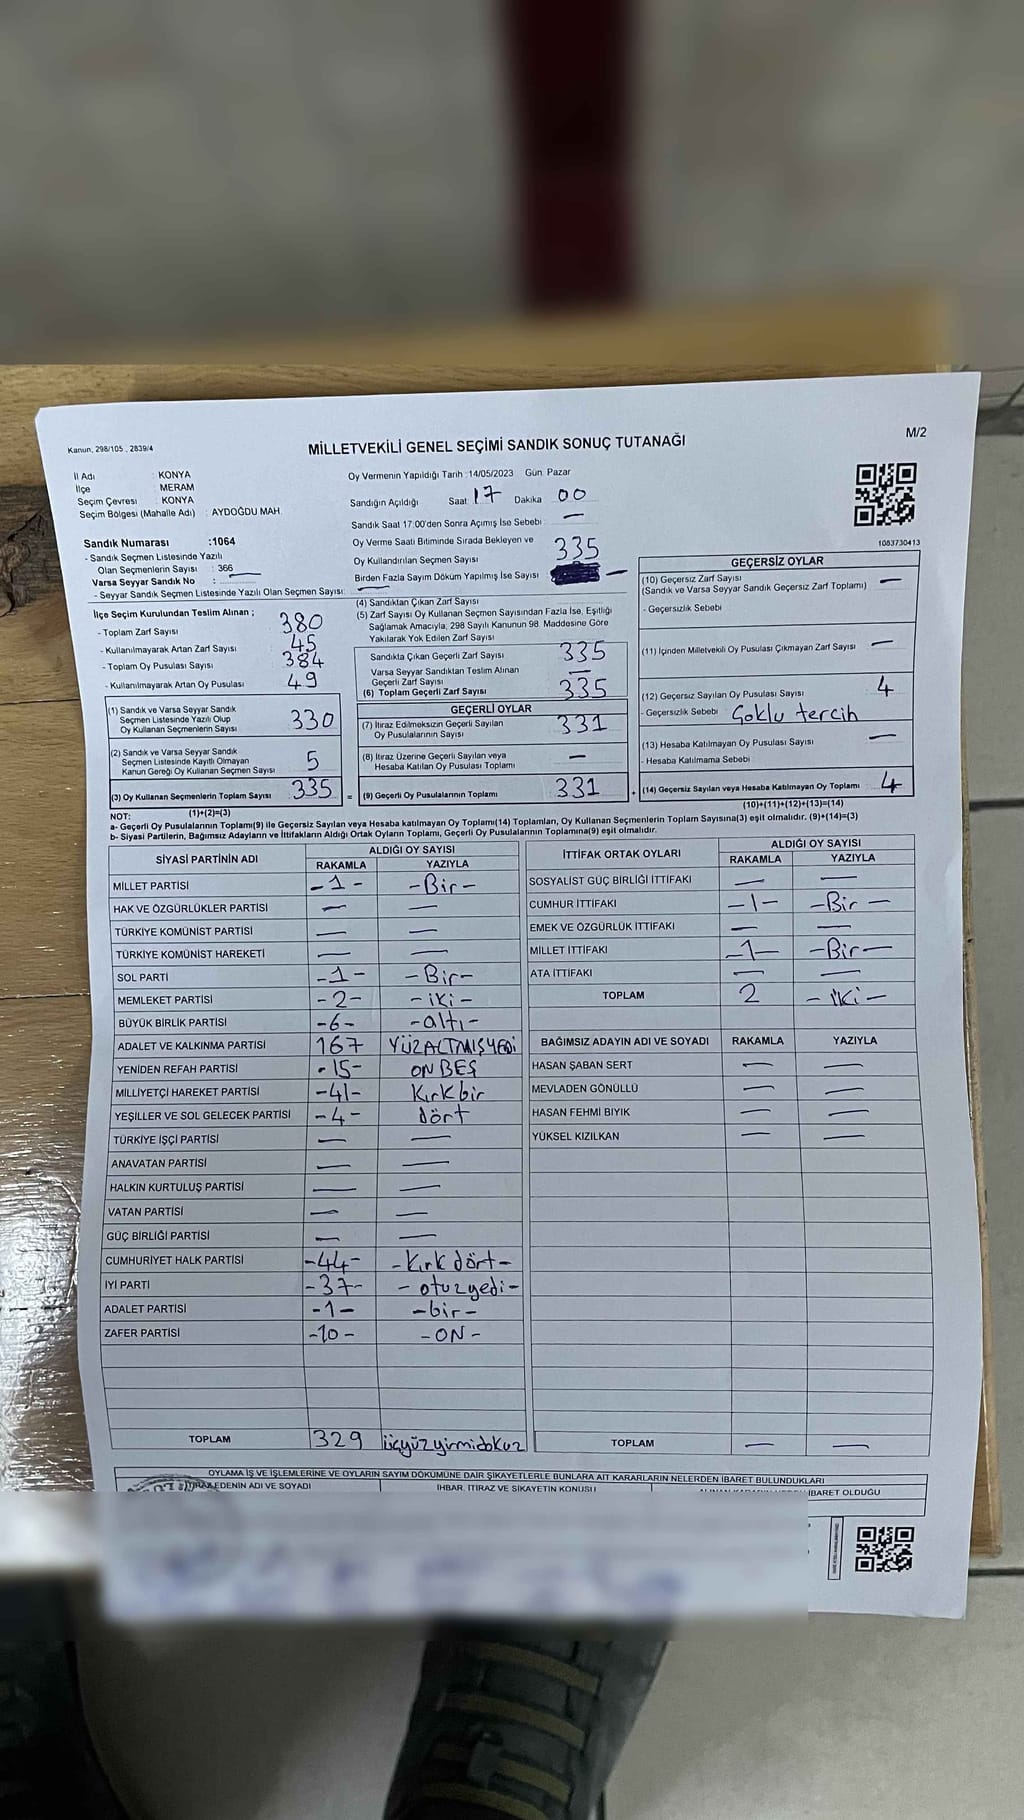 Kanun, 298/105 , 2839/4
MİLLETVEKİLİ GENEL SEÇİMİ SANDIK SONUÇ TUTANAĞI
M/2
İl Adı : KONYA
İlçe : MERAM
Seçim Çevresi : KONYA
Seçim Bölgesi (Mahalle Adı) : AYDOĞDU MAH.
Oy Vermenin Yapıldığı Tarih : 14/05/2023 Gün: Pazar
Sandığın Açıldığı Saat 17 Dakika 00
Sandık Saat 17:00'den Sonra Açımış İse Sebebi : —
Oy Verme Saati Bitiminde Sırada Bekleyen ve
Oy Kullandırılan Seçmen Sayısı 335
Birden Fazla Sayım Döküm Yapılmış İse Sayısı —
1083730413
Sandık Numarası :1064
- Sandık Seçmen Listesinde Yazılı
Olan Seçmenlerin Sayısı : 366
Varsa Seyyar Sandık No :
- Seyyar Sandık Seçmen Listesinde Yazılı Olan Seçmen Sayısı: —
İlçe Seçim Kurulundan Teslim Alınan ;
- Toplam Zarf Sayısı 380
- Kullanılmayarak Artan Zarf Sayısı 45
- Toplam Oy Pusulası Sayısı 384
- Kullanılmayarak Artan Oy Pusulası 49
(1) Sandık ve Varsa Seyyar Sandık
Seçmen Listesinde Yazılı Olup
Oy Kullanan Seçmenlerin Sayısı 330
(2) Sandık ve Varsa Seyyar Sandık
Seçmen Listesinde Kayıtlı Olmayan
Kanun Gereği Oy Kullanan Seçmen Sayısı 5
(3) Oy Kullanan Seçmenlerin Toplam Sayısı 335
(1)+(2)=(3)
(4) Sandıktan Çıkan Zarf Sayısı
(5) Zarf Sayısı Oy Kullanan Seçmen Sayısından Fazla İse, Eşitliği
Sağlamak Amacıyla, 298 Sayılı Kanunun 98. Maddesine Göre
Yakılarak Yok Edilen Zarf Sayısı
Sandıkta Çıkan Geçerli Zarf Sayısı 335
Varsa Seyyar Sandıktan Teslim Alınan
Geçerli Zarf Sayısı —
(6) Toplam Geçerli Zarf Sayısı 335
GEÇERLİ OYLAR
(7) İtiraz Edilmeksizin Geçerli Sayılan
Oy Pusulalarının Sayısı 331
(8) İtiraz Üzerine Geçerli Sayılan veya
Hesaba Katılan Oy Pusulası Toplamı —
= (9) Geçerli Oy Pusulalarının Toplamı 331
GEÇERSİZ OYLAR
(10) Geçersiz Zarf Sayısı —
(Sandık ve Varsa Seyyar Sandık Geçersiz Zarf Toplamı)
- Geçersizlik Sebebi
(11) İçinden Milletvekili Oy Pusulası Çıkmayan Zarf Sayısı —
(12) Geçersiz Sayılan Oy Pusulası Sayısı 4
- Geçersizlik Sebebi Çoklu tercih
(13) Hesaba Katılmayan Oy Pusulası Sayısı —
- Hesaba Katılmama Sebebi
+ (14) Geçersiz Sayılan veya Hesaba Katılmayan Oy Toplamı 4
(10)+(11)+(12)+(13)=(14)
NOT:
a- Geçerli Oy Pusulalarının Toplamı(9) ile Geçersiz Sayılan veya Hesaba katılmayan Oy Toplamı(14) Toplamları, Oy Kullanan Seçmenlerin Toplam Sayısına(3) eşit olmalıdır. (9)+(14)=(3)
b- Siyasi Partilerin, Bağımsız Adayların ve İttifakların Aldığı Ortak Oyların Toplamı, Geçerli Oy Pusulalarının Toplamına(9) eşit olmalıdır.
SİYASİ PARTİNİN ADI ALDIĞI OY SAYISI
RAKAMLA YAZIYLA
MİLLET PARTİSİ -1- -Bir-
HAK VE ÖZGÜRLÜKLER PARTİSİ — —
TÜRKİYE KOMÜNİST PARTİSİ — —
TÜRKİYE KOMÜNİST HAREKETİ — —
SOL PARTİ -1- -Bir-
MEMLEKET PARTİSİ -2- -iki-
BÜYÜK BİRLİK PARTİSİ -6- -altı-
ADALET VE KALKINMA PARTİSİ 167 YÜZALTMIŞYEDİ
YENİDEN REFAH PARTİSİ -15- ON BEŞ
MİLLİYETÇİ HAREKET PARTİSİ -41- Kırk bir
YEŞİLLER VE SOL GELECEK PARTİSİ -4- dört
TÜRKİYE İŞÇİ PARTİSİ — —
ANAVATAN PARTİSİ — —
HALKIN KURTULUŞ PARTİSİ — —
VATAN PARTİSİ — —
GÜÇ BİRLİĞİ PARTİSİ — —
CUMHURİYET HALK PARTİSİ -44- -Kırk dört-
İYİ PARTİ -37- -otuzyedi-
ADALET PARTİSİ -1- -bir-
ZAFER PARTİSİ -10- -ON-
TOPLAM 329 üçyüzyirmidokuz
İTTİFAK ORTAK OYLARI ALDIĞI OY SAYISI
RAKAMLA YAZIYLA
SOSYALİST GÜÇ BİRLİĞİ İTTİFAKI — —
CUMHUR İTTİFAKI -1- -Bir-
EMEK VE ÖZGÜRLÜK İTTİFAKI — —
MİLLET İTTİFAKI -1- -Bir-
ATA İTTİFAKI — —
TOPLAM 2 -İki-
BAĞIMSIZ ADAYIN ADI VE SOYADI RAKAMLA YAZIYLA
HASAN ŞABAN SERT — —
MEVLADEN GÖNÜLLÜ — —
HASAN FEHMİ BIYIK — —
YÜKSEL KIZILKAN — —
TOPLAM — —
OYLAMA İŞ VE İŞLEMLERİNE VE OYLARIN SAYIM DÖKÜMÜNE DAİR ŞİKAYETLERLE BUNLARA AİT KARARLARIN NELERDEN İBARET BULUNDUKLARI
İTİRAZ EDENİN ADI VE SOYADI İHBAR, İTİRAZ VE ŞİKAYETİN KONUSU İBARET OLDUĞU